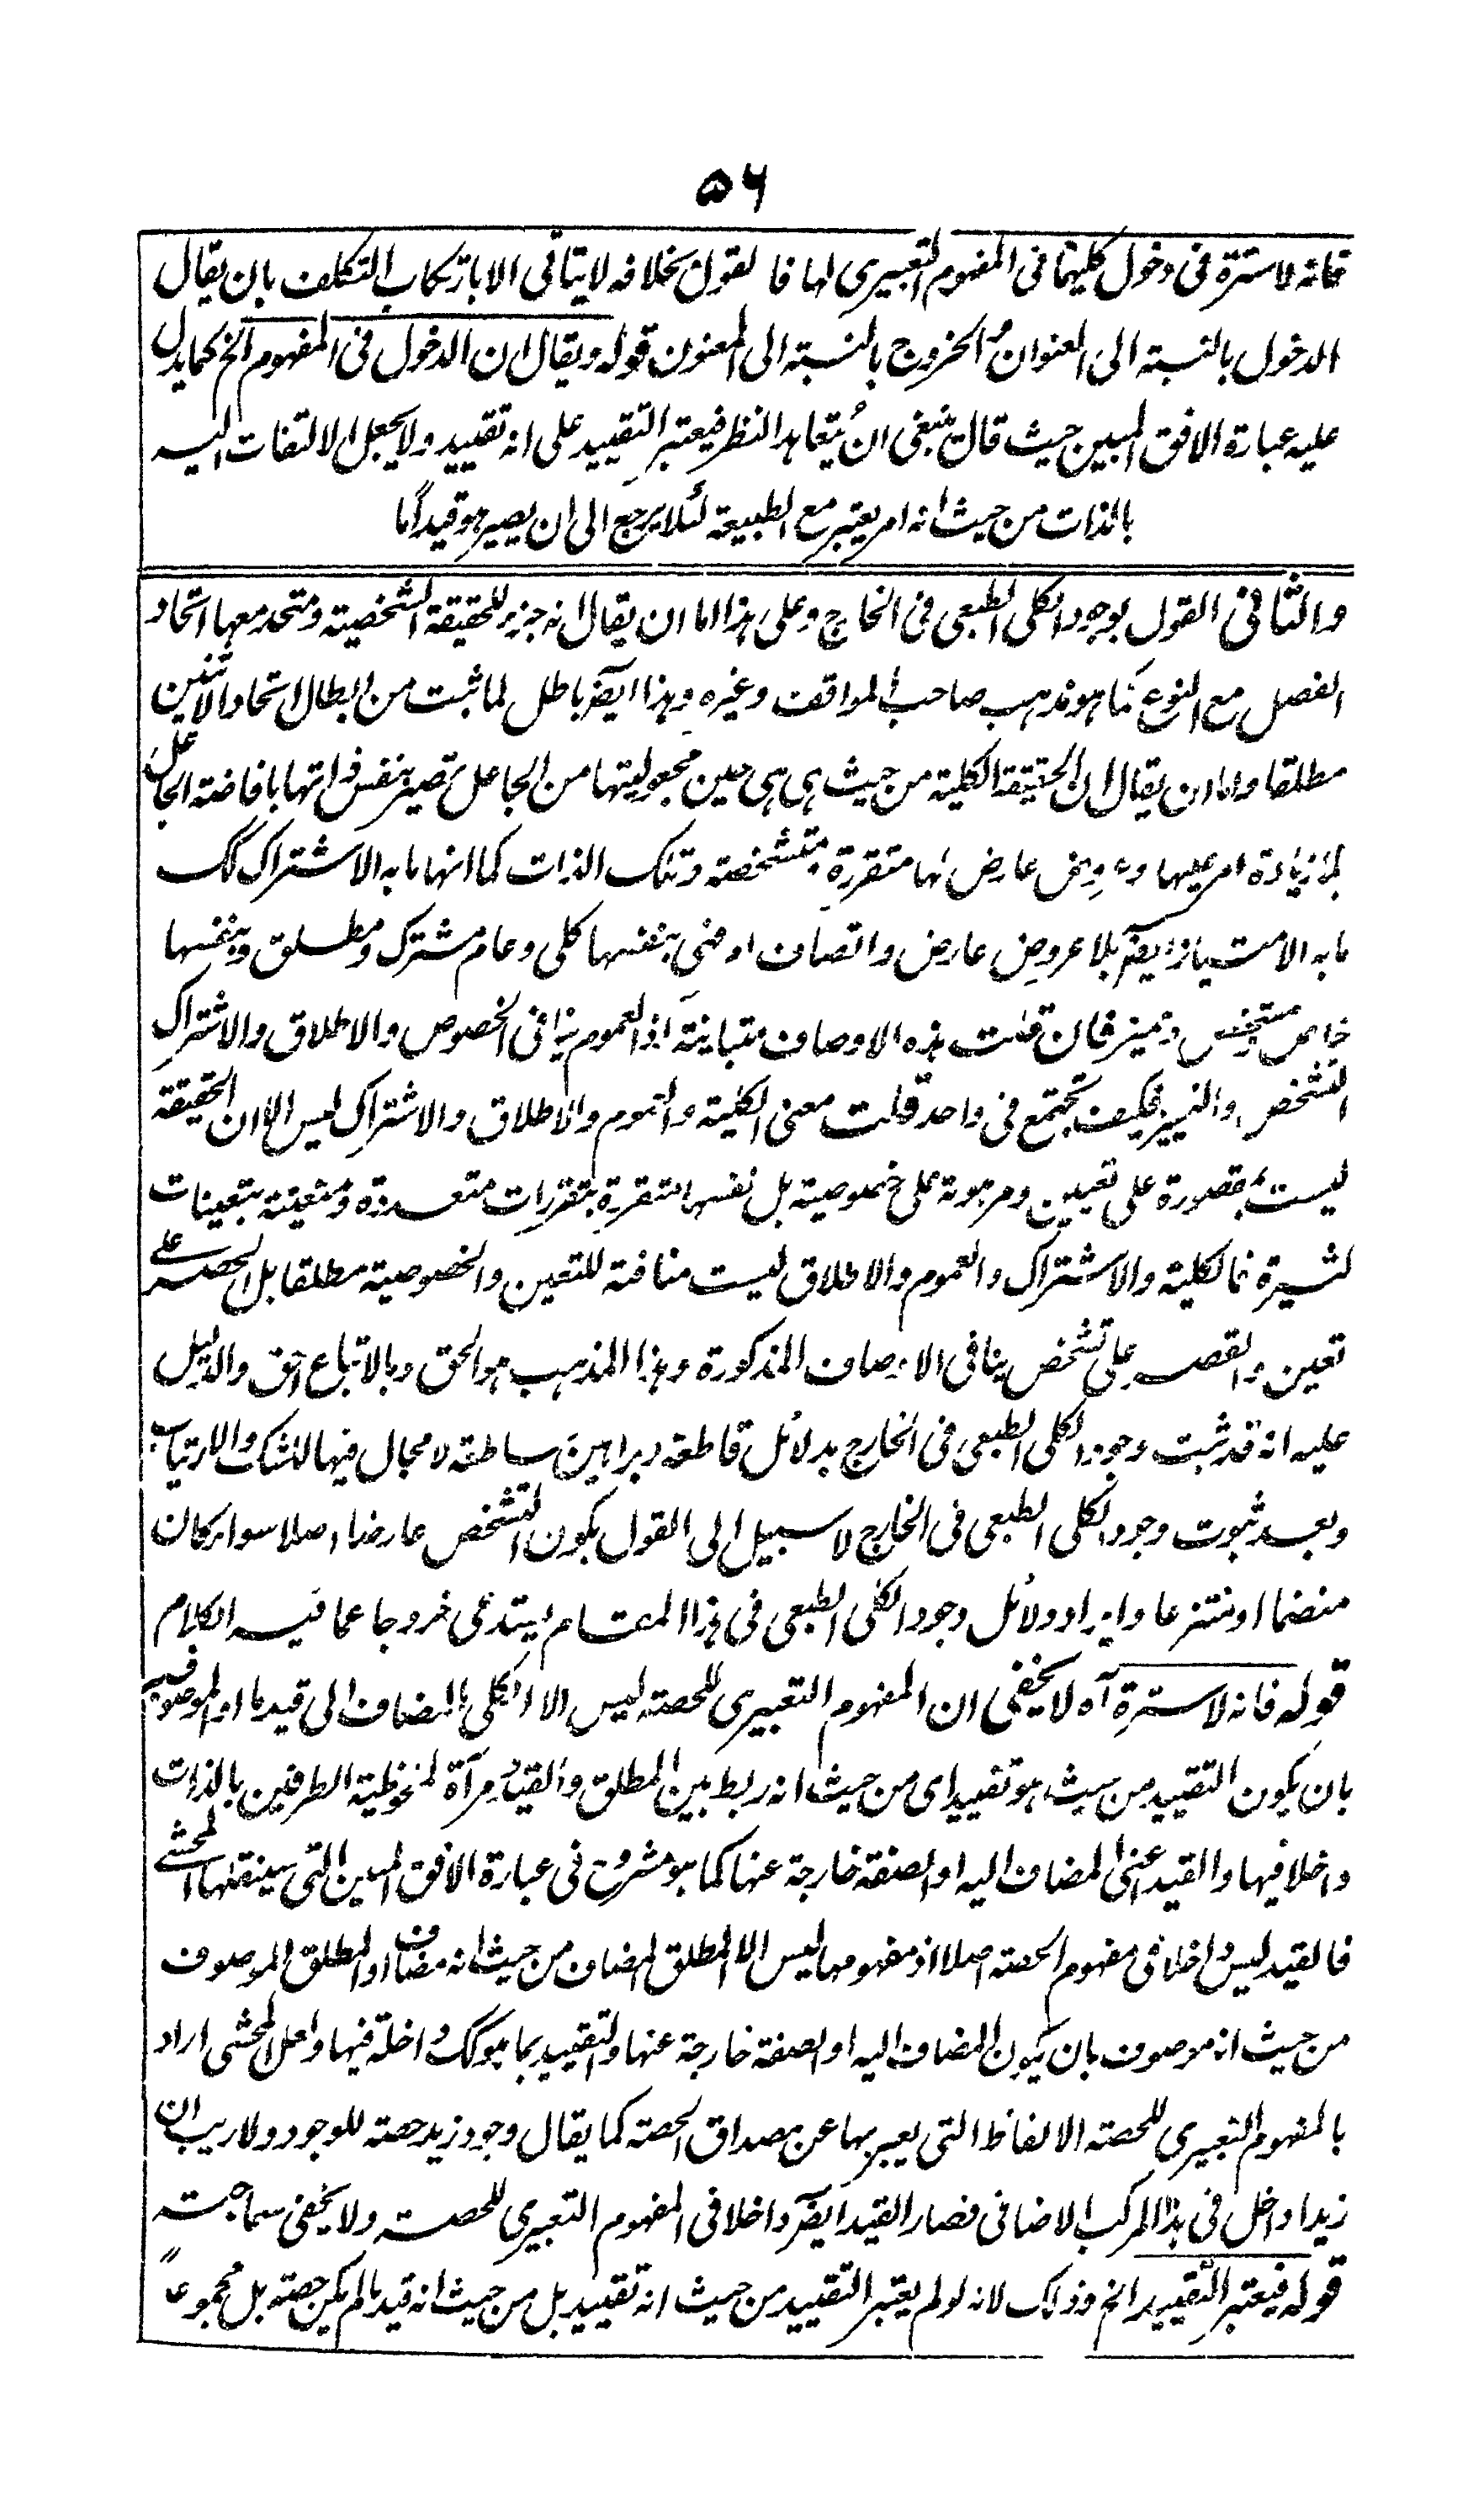 ۵۶
فانه لا سترة فى دخول كليهما فى المفهوم التعبيرى لها فا لقول بخلافه لا يتأتى الا بارتكاب التكلف بان يقال
الدخول بالنسبة الى العنوان والخروج بالنسبة الى المعنون قوله ويقال ان الدخول فى المفهوم الخ كما يدل
عليه عبارة الافق المبين حيث قال ينبغى ان يتعاهد النظر فيعتبر التقييد على انه تقييد ولا يجعل الالتفات اليه
بالذات من حيث انه امر يعتبر مع الطبيعة لئلا يرجع الى ان يصير هو قيدا ما
والثانى القول بوجود الكلى الطبعى فى الخارج وعلى هذا اما ان يقال انه جزء للحقيقة الشخصية ومتحد معها اتحاد
الفصل مع النوع كما هو مذهب صاحب المواقف وغيره وهذا ايضا باطل لما ثبت من ابطال اتحاد الاثنين
مطلقا واما ان يقال ان الحقيقة الكلية من حيث هى هى حين مجعوليتها من الجاعل تصير بنفس ذاتها بافاضة الجاعل
بلا زيادة امر عليها وعروض عارض لها متقررة متشخصة وتلك الذات كما انها ما به الاشتراك كك
ما به الامتياز ايضا بلا عروض عارض واتصاف او فهى بنفسها كلى وعام مشترك ومطلق وبنفسها
خاص متشخص ومميز فان قلت هذه الاوصاف متباينة اذ العموم ينافى الخصوص والاطلاق والاشتراك
التشخص والتمييز فكيف تجتمع فى واحد قلت معنى الكلية والعموم والاطلاق والاشتراك ليس الا ان الحقيقة
ليست بمقصورة على تعين ومرهونة على خصوصية بل نفسها متقررة بتقررات متعددة ومتعينة بتعينات
كثيرة فالكلية والاشتراك والعموم والاطلاق ليست منافية للتعين والخصوصية مطلقا بل الحصر على
تعين والقصر على تشخص ينافى الاوصاف المذكورة وهذا المذهب هو الحق وبالاتباع احق والدليل
عليه انه قد ثبت وجود الكلى الطبعى فى الخارج بدلائل قاطعة وبراهين ساطعة لا مجال فيها للشك والارتياب
وبعد ثبوت وجود الكلى الطبعى فى الخارج لا سبيل الى القول بكون التشخص عارضا اصلا سواء كان
منضما او منتزعا وايراد دلائل وجود الكلى الطبعى فى هذا المقام يستدعى خروجا عما فيه الكلام
قوله فانه لا سترة آه لا يخفى ان المفهوم التعبيرى للحصة ليس الا الكلى المضاف الى قيد ما او الموصوف به
بان يكون التقييد من حيث هو تقييد اى من حيث انه ربط بين المطلق والقيد ومرآة لملحوظية الطرفين بالذات
داخلا فيها والقيد اعنى المضاف اليه او الصفة خارجة عنها كما هو مشروح فى عبارة الافق المبين التى سينقلها المحشى
فالقيد ليس داخلا فى مفهوم الحصة اصلا اذ مفهومها ليس الا المطلق المضاف من حيث انه مضاف او المطلق الموصوف
من حيث انه موصوف بان يكون المضاف اليه او الصفة خارجة عنها والتقييد بما هو كك داخلة فيها ولعل المحشى اراد
بالمفهوم التعبيرى للحصة الالفاظ التى يعبر بها عن مصداق الحصة كما يقال وجود زيد حصة للوجود ولا ريب ان
زيدا داخل فى هذا المركب الاضافى فصار القيد ايضا داخلا فى المفهوم التعبيرى للحصة ولا يخفى سماجته
قوله فيعتبر التقييد الخ وذلك لانه لو لم يعتبر التقييد من حيث انه تقييد بل من حيث انه قيد ما لم يكن حصة بل مجموعاً